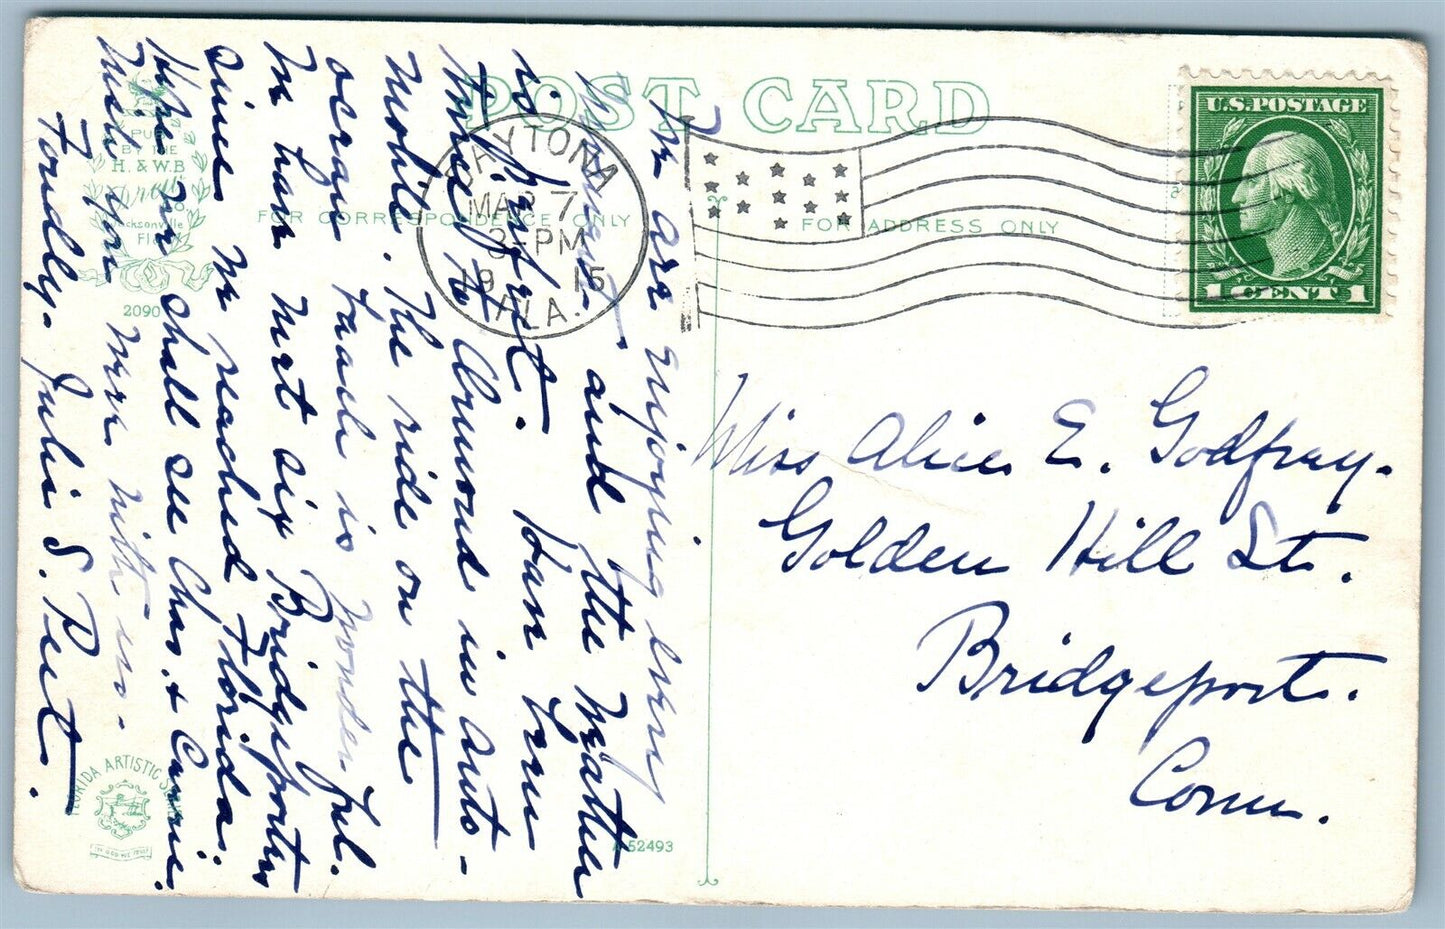 POST CARD
FOR CORRESPONDENCE ONLY
FOR ADDRESS ONLY
U.S. POSTAGE
1 CENT 1
DAYTONA
MAR 7
3-PM
19 15
FLA.
PUB
BY THE
H. & W.B.
Drew
CO
Jacksonville
FLA.
2090
We are enjoying every
moment and the weather
is perfect. Have been
three to Ormond in auto-
mobile. The ride on the
ocean beach is wonderful.
We have met six Bridgeporters
since we reached Florida.
Hope we shall see Chas. & Carrie.
Wish you were with us.
Fondly. Julie S. Peet.
Miss Alice E. Godfrey.
Golden Hill St.
Bridgeport.
Conn.
FLORIDA ARTISTIC
A 52493